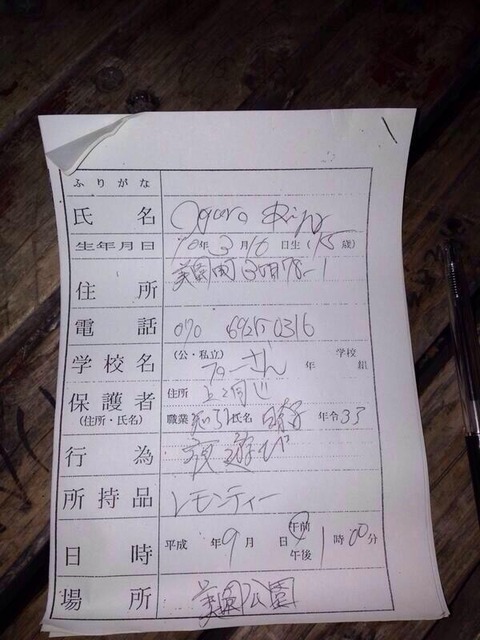 ふりがな
氏名 Ogura
生年月日 10年3月16日生(15歳)
住所 美園町3丁目78-1
電話 070 6925 0316
学校名 (公・私立) フローさん 年 学校 組
保護者 (住所・氏名) 住所 上と同じ
職業 氏名 年令33
行為 夜遊び
所持品 レモンティー
日時 平成 年9月 日 午前 午後 1時00分
場所 美園公園